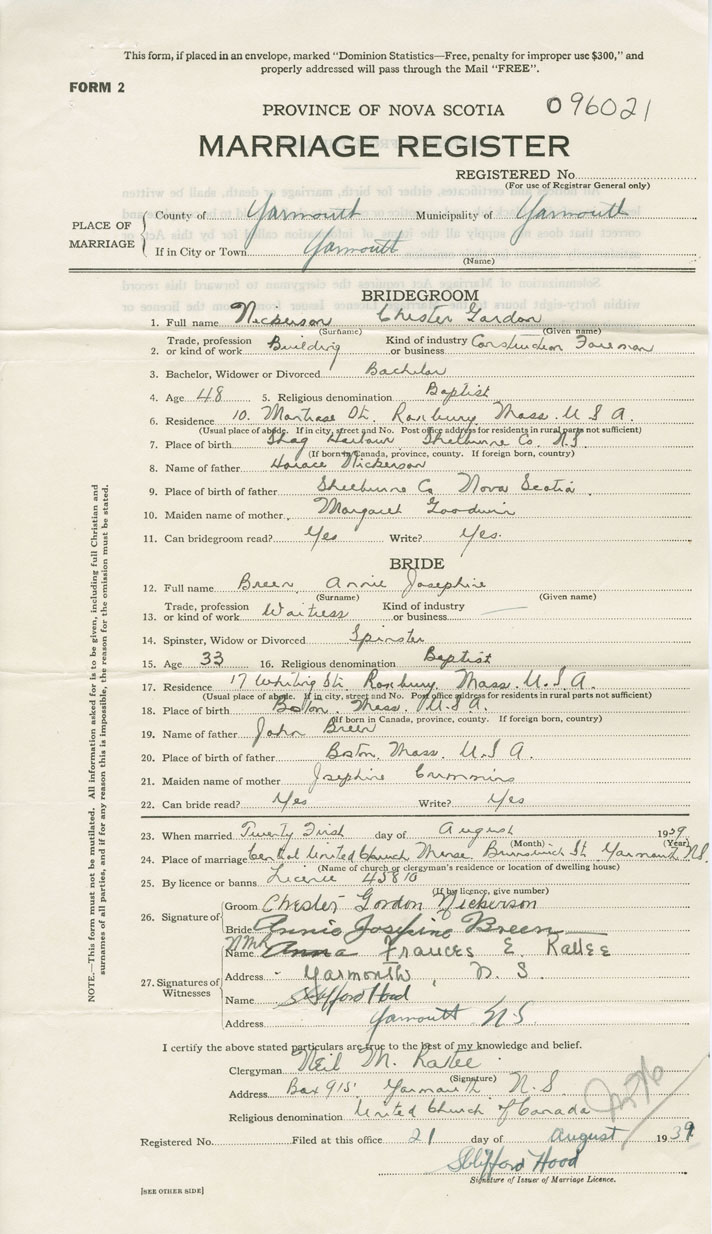 This form, if placed in an envelope, marked "Dominion Statistics—Free, penalty for improper use $300," and
properly addressed will pass through the Mail "FREE".
FORM 2
PROVINCE OF NOVA SCOTIA 096021
MARRIAGE REGISTER
REGISTERED No.
(For use of Registrar General only)
PLACE OF MARRIAGE
County of Yarmouth Municipality of Yarmouth
If in City or Town Yarmouth
(Name)
BRIDEGROOM
1. Full name Nickerson Chester Gordon
(Surname) (Given name)
2. Trade, profession or kind of work Building Kind of industry or business Construction Foreman
3. Bachelor, Widower or Divorced Bachelor
4. Age 48 5. Religious denomination Baptist
6. Residence 10. Montrose St. Roxbury Mass. U S A.
(Usual place of abode. If in city, street and No. Post office address for residents in rural parts not sufficient)
7. Place of birth Shag Harbour Shelburne Co. N.S
(If born in Canada, province, county. If foreign born, country)
8. Name of father Horace Nickerson
9. Place of birth of father Shelburne Co Nova Scotia
10. Maiden name of mother Margaret Goodwin
11. Can bridegroom read? Yes Write? Yes.
BRIDE
12. Full name Breen Annie Josephine
(Surname) (Given name)
13. Trade, profession or kind of work Waitress Kind of industry or business
14. Spinster, Widow or Divorced Spinster
15. Age 33 16. Religious denomination Baptist
17. Residence 17 Whiting St. Roxbury Mass. U.S.A.
(Usual place of abode. If in city, street and No. Post office address for residents in rural parts not sufficient)
18. Place of birth Boston. Mass. U.S.A.
(If born in Canada, province, county. If foreign born, country)
19. Name of father John Breen
20. Place of birth of father Boston. Mass. U.S.A.
21. Maiden name of mother Josephine Cummins
22. Can bride read? Yes Write? Yes
23. When married Twenty First day of August 1939.
(Month) (Year)
24. Place of marriage Central United Church Manse Brunswick St. Yarmouth N.S.
(Name of church or clergyman's residence or location of dwelling house)
25. By licence or banns Licence 45810
(If by licence, give number)
26. Signature of
Groom Chester Gordon Nickerson
Bride Annie Josephine Breen
27. Signatures of Witnesses
Name Anna Frances E. Rattee
Address Yarmouth, N S.
Name S Clifford Hood
Address Yarmouth N.S.
I certify the above stated particulars are true to the best of my knowledge and belief.
Clergyman Neil M. Rattee
(Signature)
Address Box 915 Yarmouth N.S.
Religious denomination United Church of Canada
Registered No. Filed at this office 21 day of August 1939
S Clifford Hood
Signature of Issuer of Marriage Licence.
[SEE OTHER SIDE]
NOTE.—This form must not be mutilated. All information asked for is to be given, including full Christian and
surnames of all parties, and if for any reason this is impossible, the reason for the omission must be stated.